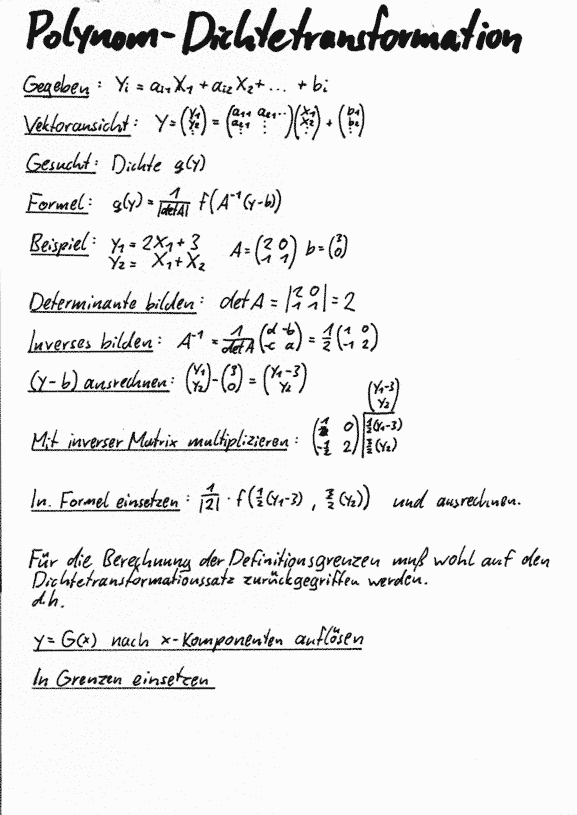 Polynom-Dichtetransformation
Gegeben: Yi = ai1 X1 + ai2 X2 + ... + bi
Vektoransicht: Y = (Y1 Y2 ⋮) = (a11 a12 ·· a21 ⋮ ⋮) (X1 X2 ⋮) + (b1 b2 ⋮)
Gesucht: Dichte g(y)
Formel: g(y) = 1/|det A| f(A⁻¹(y-b))
Beispiel: Y1 = 2X1 + 3 A = (2 0 1 1) b = (3 0)
Y2 = X1 + X2
Determinante bilden: det A = |2 0 1 1| = 2
Inverses bilden: A⁻¹ = 1/det A (d -b -c a) = 1/2 (1 0 -1 2)
(y-b) ausrechnen: (Y1 Y2) - (3 0) = (Y1-3 Y2)
(Y1-3 Y2)
Mit inverser Matrix multiplizieren: (1/2 0 -1/2 2) 1/2(Y1-3)
(Y2)
In Formel einsetzen: 1/|2| · f(1/2(Y1-3), (Y2)) und ausrechnen.
Für die Berechnung der Definitionsgrenzen muß wohl auf den
Dichtetransformationssatz zurückgegriffen werden.
d.h.
y = G(x) nach x-Komponenten auflösen
In Grenzen einsetzen